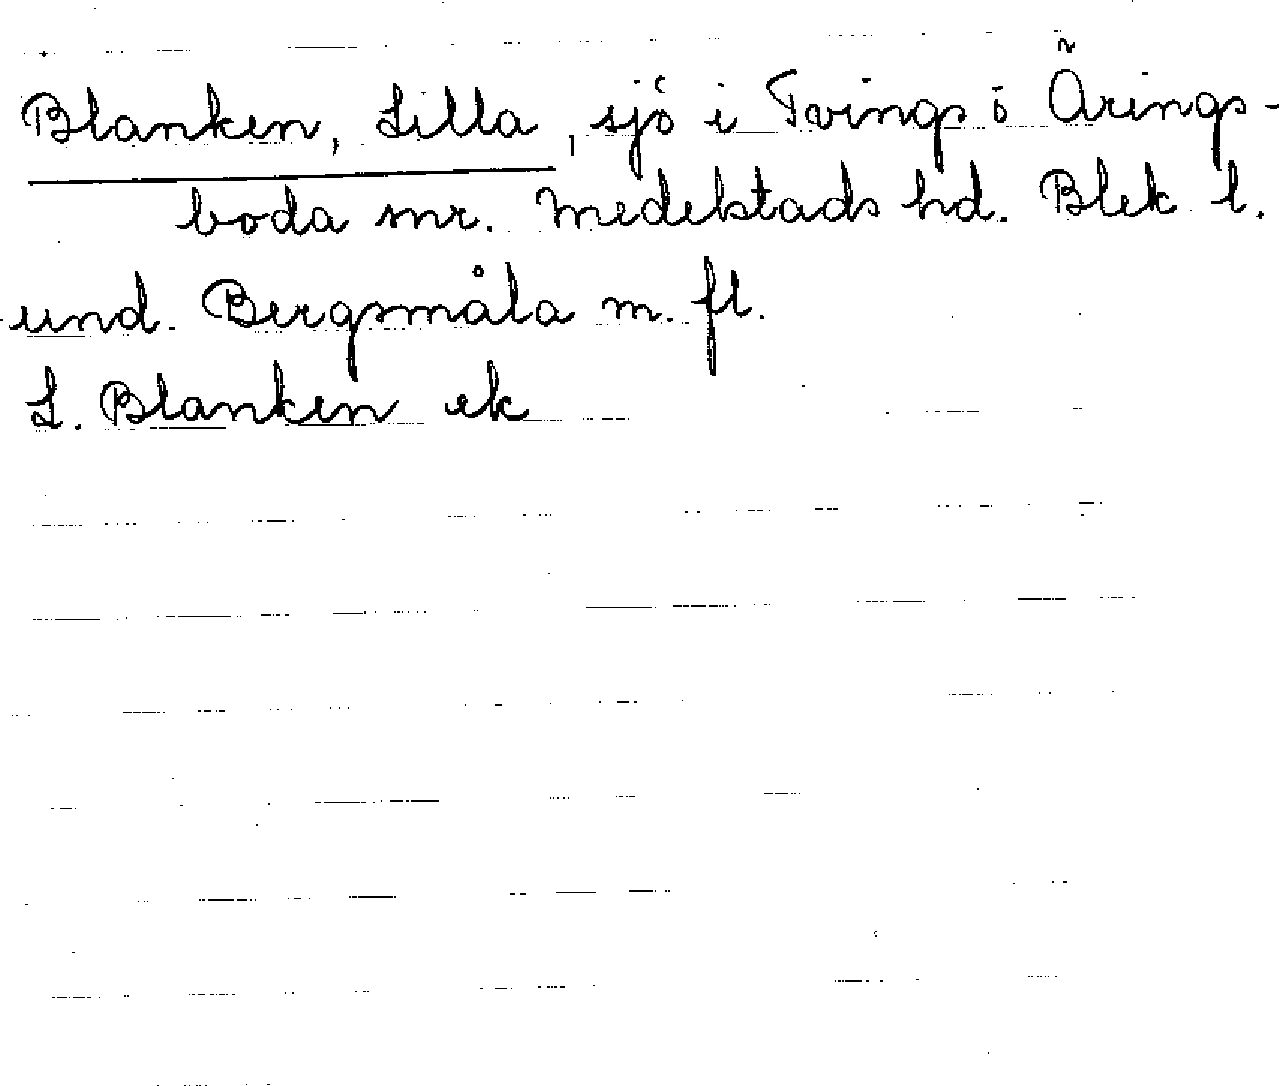 Blanken, Lilla, sjö i Tvings ö Ärings-
boda snr. Medelstads hd. Blek l.
und. Bergsmåla m. fl.
L. Blanken ek